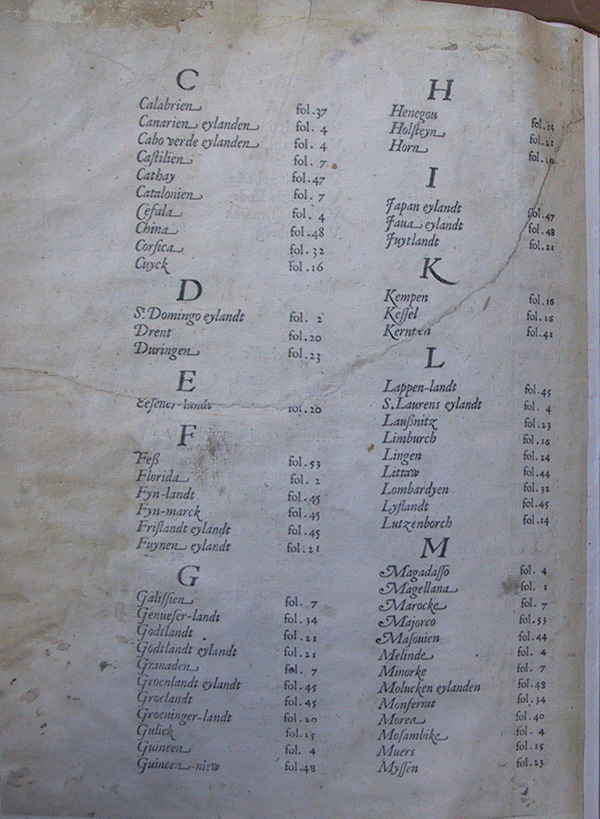 C
Calabrien fol.37
Canarien eylanden fol. 4
Cabo verde eylanden fol. 4
Caſtilien fol. 7
Cathay fol.47
Catalonien fol. 7
Cefala fol. 4
China fol.48
Corſica fol.32
Cuyck fol.16
D
S. Domingo eylandt fol. 2
Drent fol.20
Duringen fol.23
E
fol.20
F
Feß fol.53
Florida fol. 2
Fyn-landt fol.45
Fyn-marck fol.45
Friſlandt eylandt fol.45
Fuynen eylandt fol.21
G
Galiſſien fol. 7
Genueſer-landt fol.34
Godtlandt fol.21
Godtlandt eylandt fol.21
Granaden fol. 7
Groenlandt eylandt fol.45
Groclandt fol.45
Groeninger-landt fol.20
Gulick fol.15
Guineen fol. 4
Guineen-niew fol.48
H
Henegou fol.14
Holſteyn fol.21
Horn fol.10
I
Japan eylandt fol.47
Jaua eylandt fol.48
Juytlandt fol.21
K
Kempen fol.16
Keſſel fol.15
Kernten fol.41
L
Lappen-landt fol.45
S. Laurens eylandt fol. 4
Laußnitz fol.23
Limburch fol.16
Lingen fol.24
Littaw fol.44
Lombardyen fol.32
Lyflandt fol.45
Lutzenborch fol.14
M
Magadaſſo fol. 4
Magellana fol. 1
Marocke fol. 7
Majorco fol.53
Maſouien fol.44
Melinde fol. 4
Minorke fol. 7
Molucken eylanden fol.48
Monferrat fol.34
Morea fol.40
Moſambike fol. 4
Muers fol.15
Myſſen fol.23